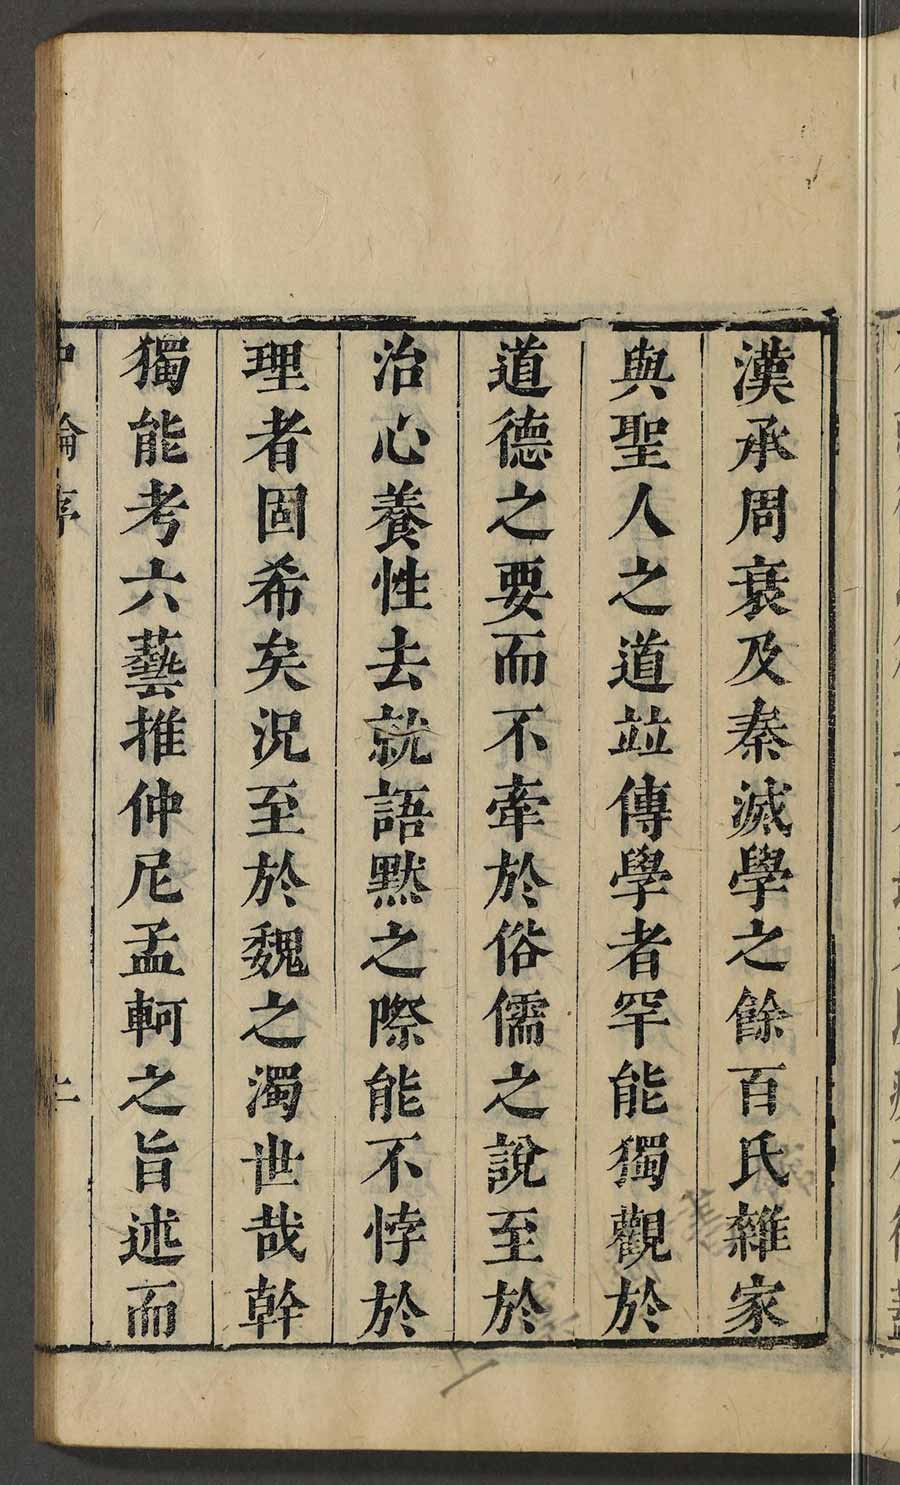 漢承周衰及秦滅學之餘百氏雜家
與聖人之道竝傳學者罕能獨觀於
道德之要而不牽於俗儒之說至於
治心養性去就語默之際能不悖於
理者固希矣況至於魏之濁世哉幹
獨能考六藝推仲尼孟軻之旨述而
中論序